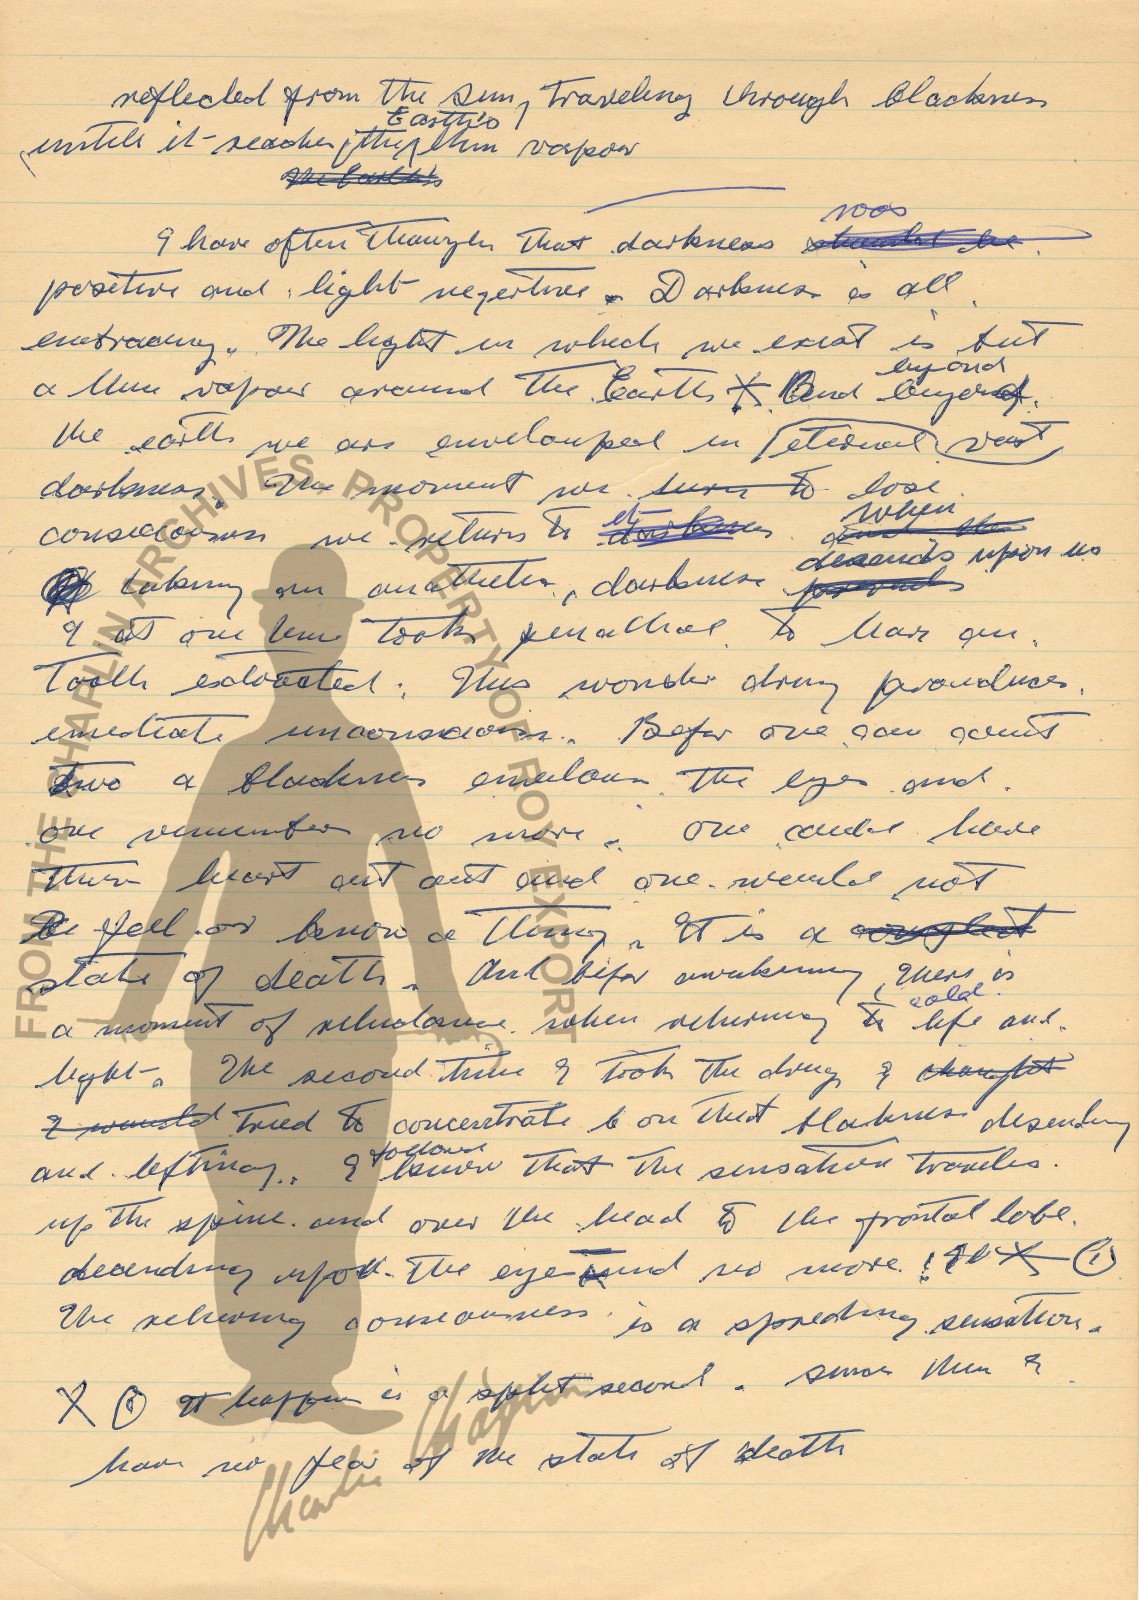 reflected from the sun, traveling through blackness
Earth's
untill it reaches the thin vapour
the Earth's
was
I have often thought that darkness should be
positive and light negitive. Darkness is all
embracing. The light in which we exist is but
beyond
a thin vapour around the Earth X. And beyond
the earth we are envelouped in eternal vast
darkness. The moment we turn to lose
it when
consciousness we return to darkness and the
decends upon us
taking an anathetic, darkness prevails
I at one time took penathal to have an
tooth extracted. This wonder drug produces
emediate unconscious. Befor one can count
two a blackness envelous the eyes and
one remembers no more. One could have
their heart cut out and one would not
Be feel or know a thing. It is a complect
state of death. And befor awakening there is
cold
a moment of reluctance when returning to life and
light. The second time I took the drug I thought
I would tried to concentrate b on that blackness desending
and lefting. I know that the sensation travels
up the spine and over the head to the frontal lobe
decending upon the eyes and no more. X ①
The returning consciousness is a spreading sensation.
X ② It happen is a split second. Since then I
have no fear of the state of death
FROM THE CHAPLIN ARCHIVES. PROPERTY OF ROY EXPORT
Charlie Chaplin